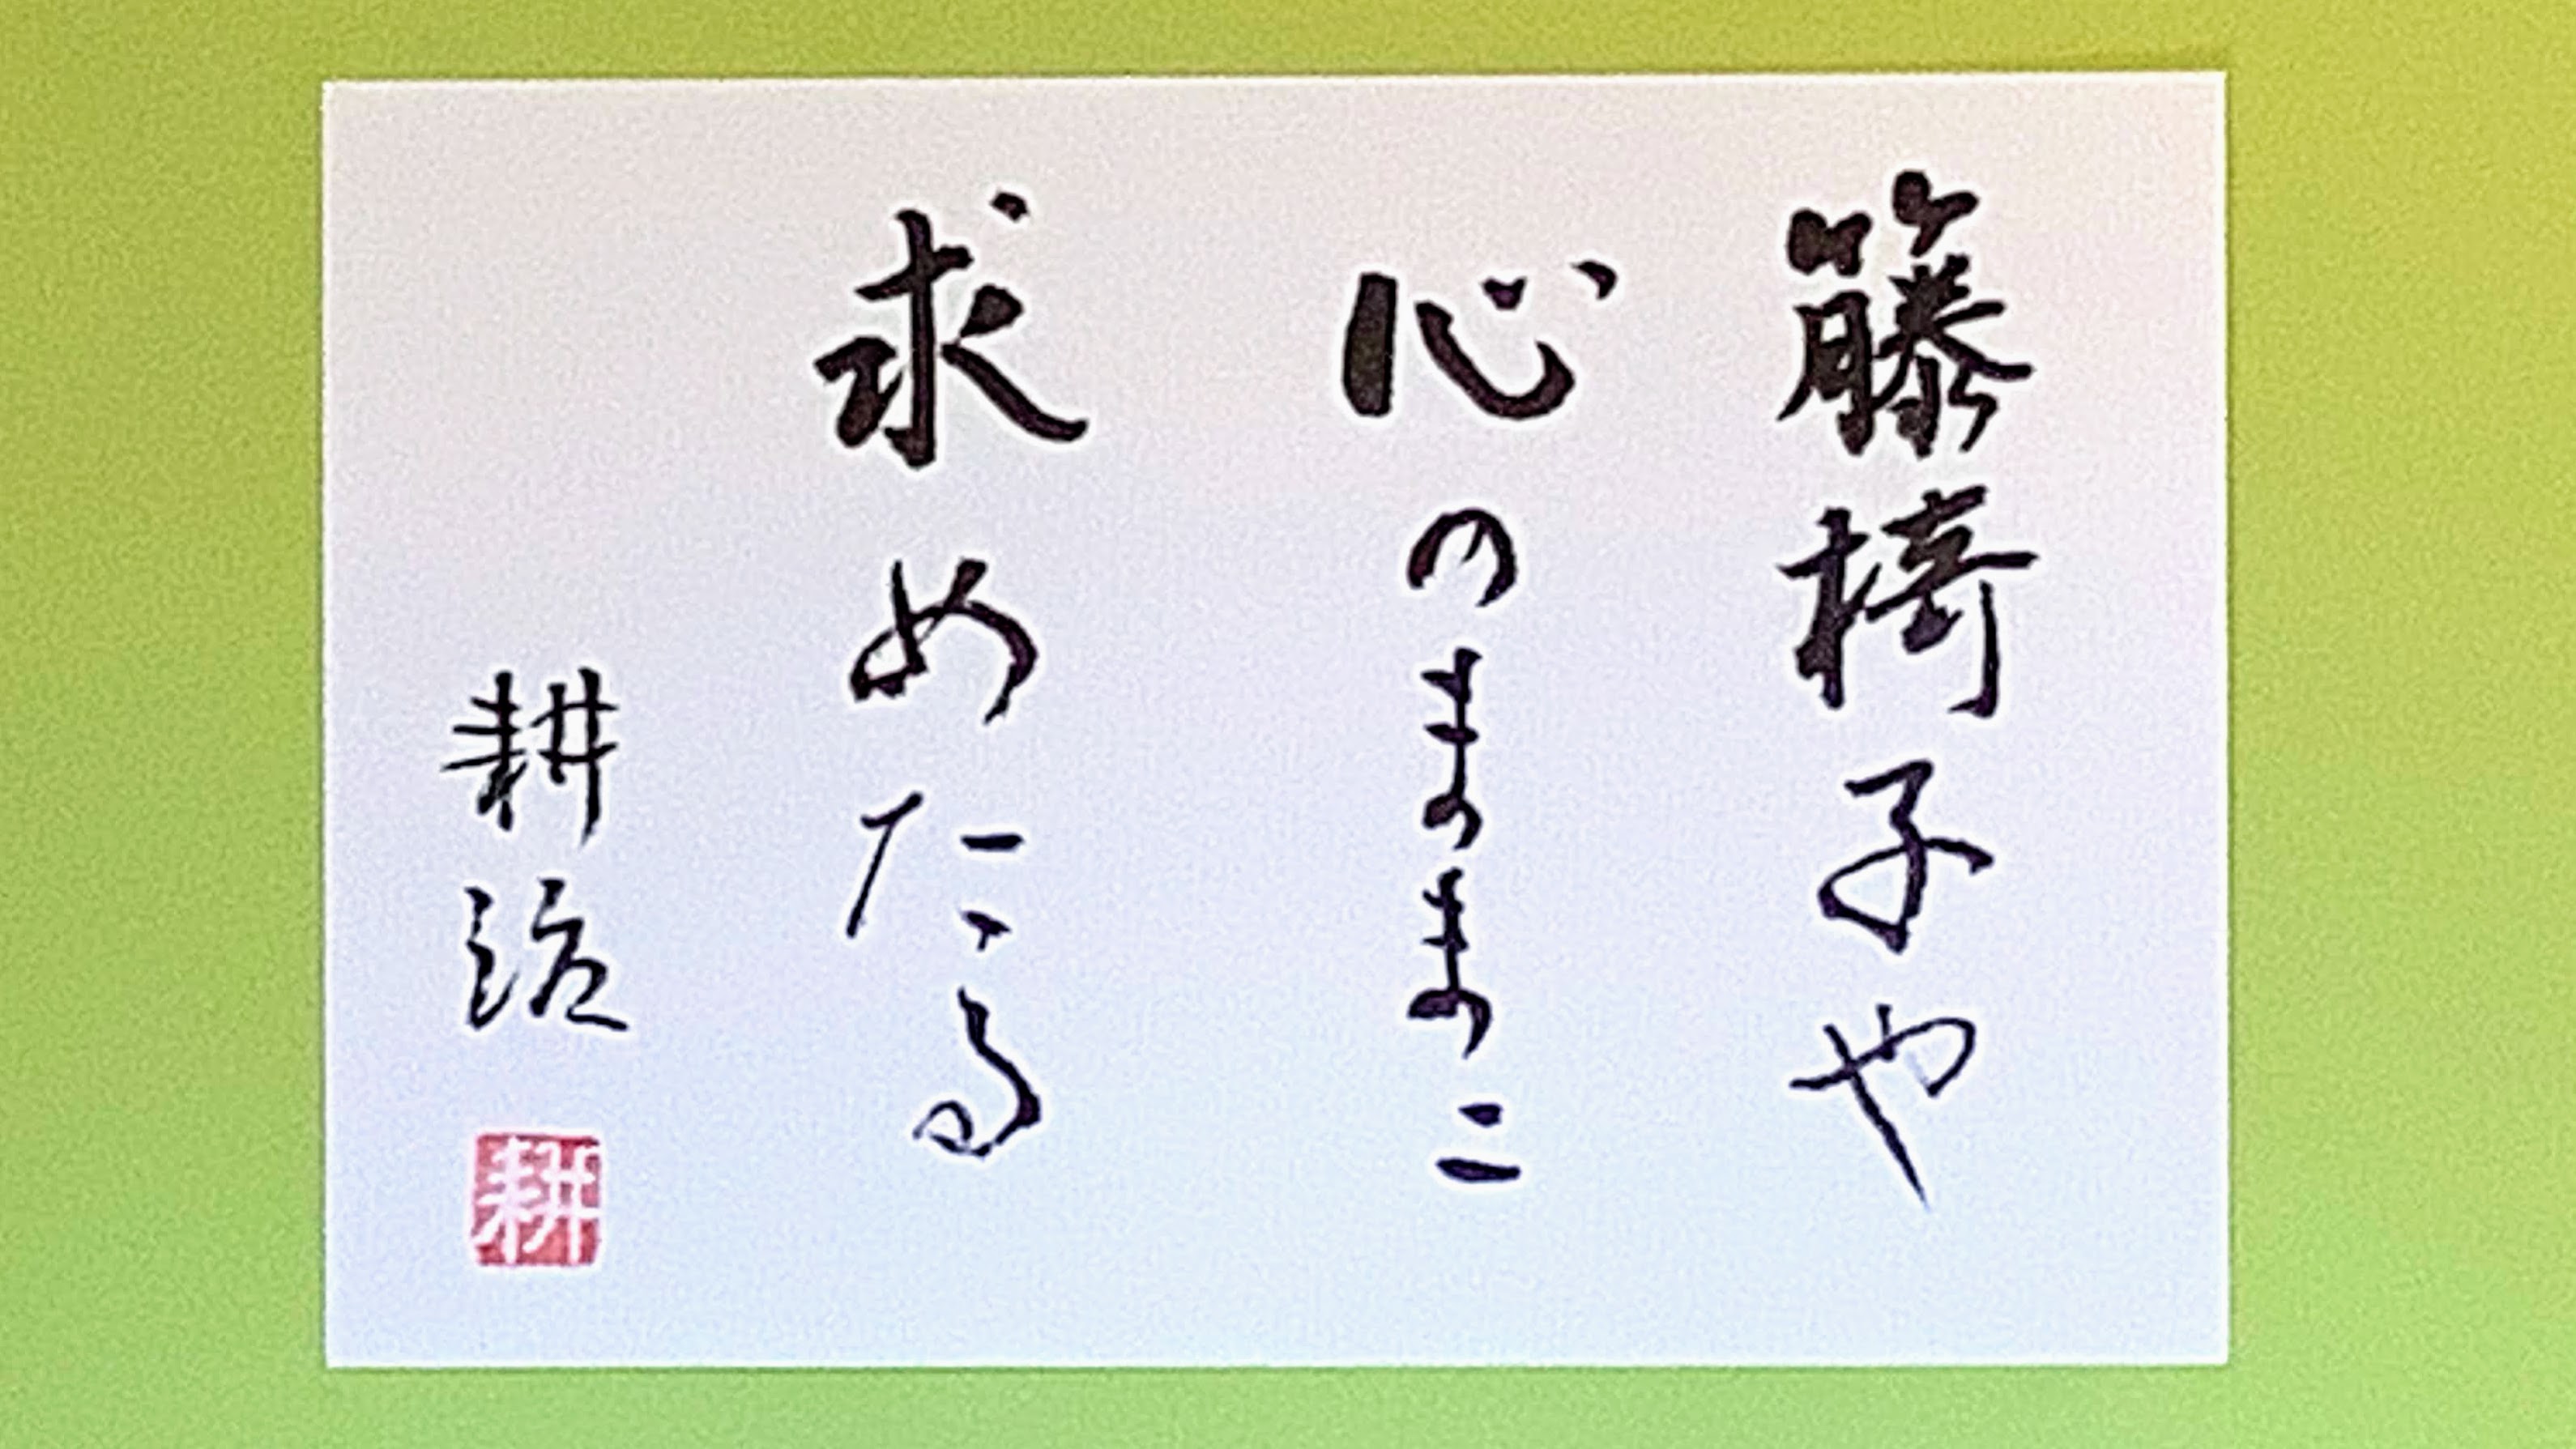 籐椅子や
心のままに
求めたる
耕治
耕